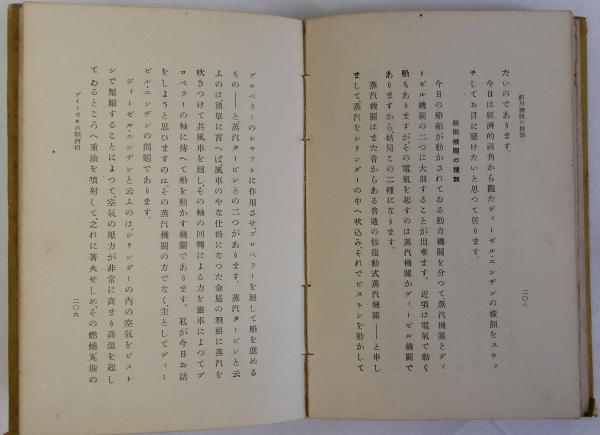 舶用機關の種類
二〇八
たいのであります。
今日は經濟的視角から觀たディーゼル・エンヂンの橫顏をスケッ
チしてお目に懸けたいと思つて居ります。
舶用機關の種類
今日の船舶が動かされてゐる動力機關を分つて蒸汽機關とディ
ーゼル機關の二つに大別することが出來ます。近頃は電氣で動く
船もありますが、その電氣を起すのは蒸汽機關かディーゼル機關で
ありますから、結局この二種になります。
蒸汽機關はまた昔からある普通の往復動式蒸汽機關――と申し
まして蒸汽をシリンダーの中へ吹込み、それでピストンを動かして
プロペラーのシャフトに作用させプロペラーを廻して船を進める
もの――と、蒸汽タービンとの二つがあります。蒸汽タービンと云
ふのは簡單に言へば風車のやな仕掛になつた金屬の羽根に蒸汽を
吹きつけて其風車を廻し、その軸の回轉による力を齒車によつてプ
ロペラーの軸に傳へて船を動かす機關であります。私が今日お話
をしようと思ひますのは、その蒸汽機關の方でなく、主としてディー
ゼル・エンヂンの問題であります。
ディーゼル・エンヂンと云ふのは、シリンダーの內の空氣をピスト
ンで壓縮することによつて、空氣の壓力が非常に高まり高溫を起し
てゐるところへ重油を噴射して、之れに著火せしめ、その燃燒瓦斯の
ディーゼルの經濟相
二〇九